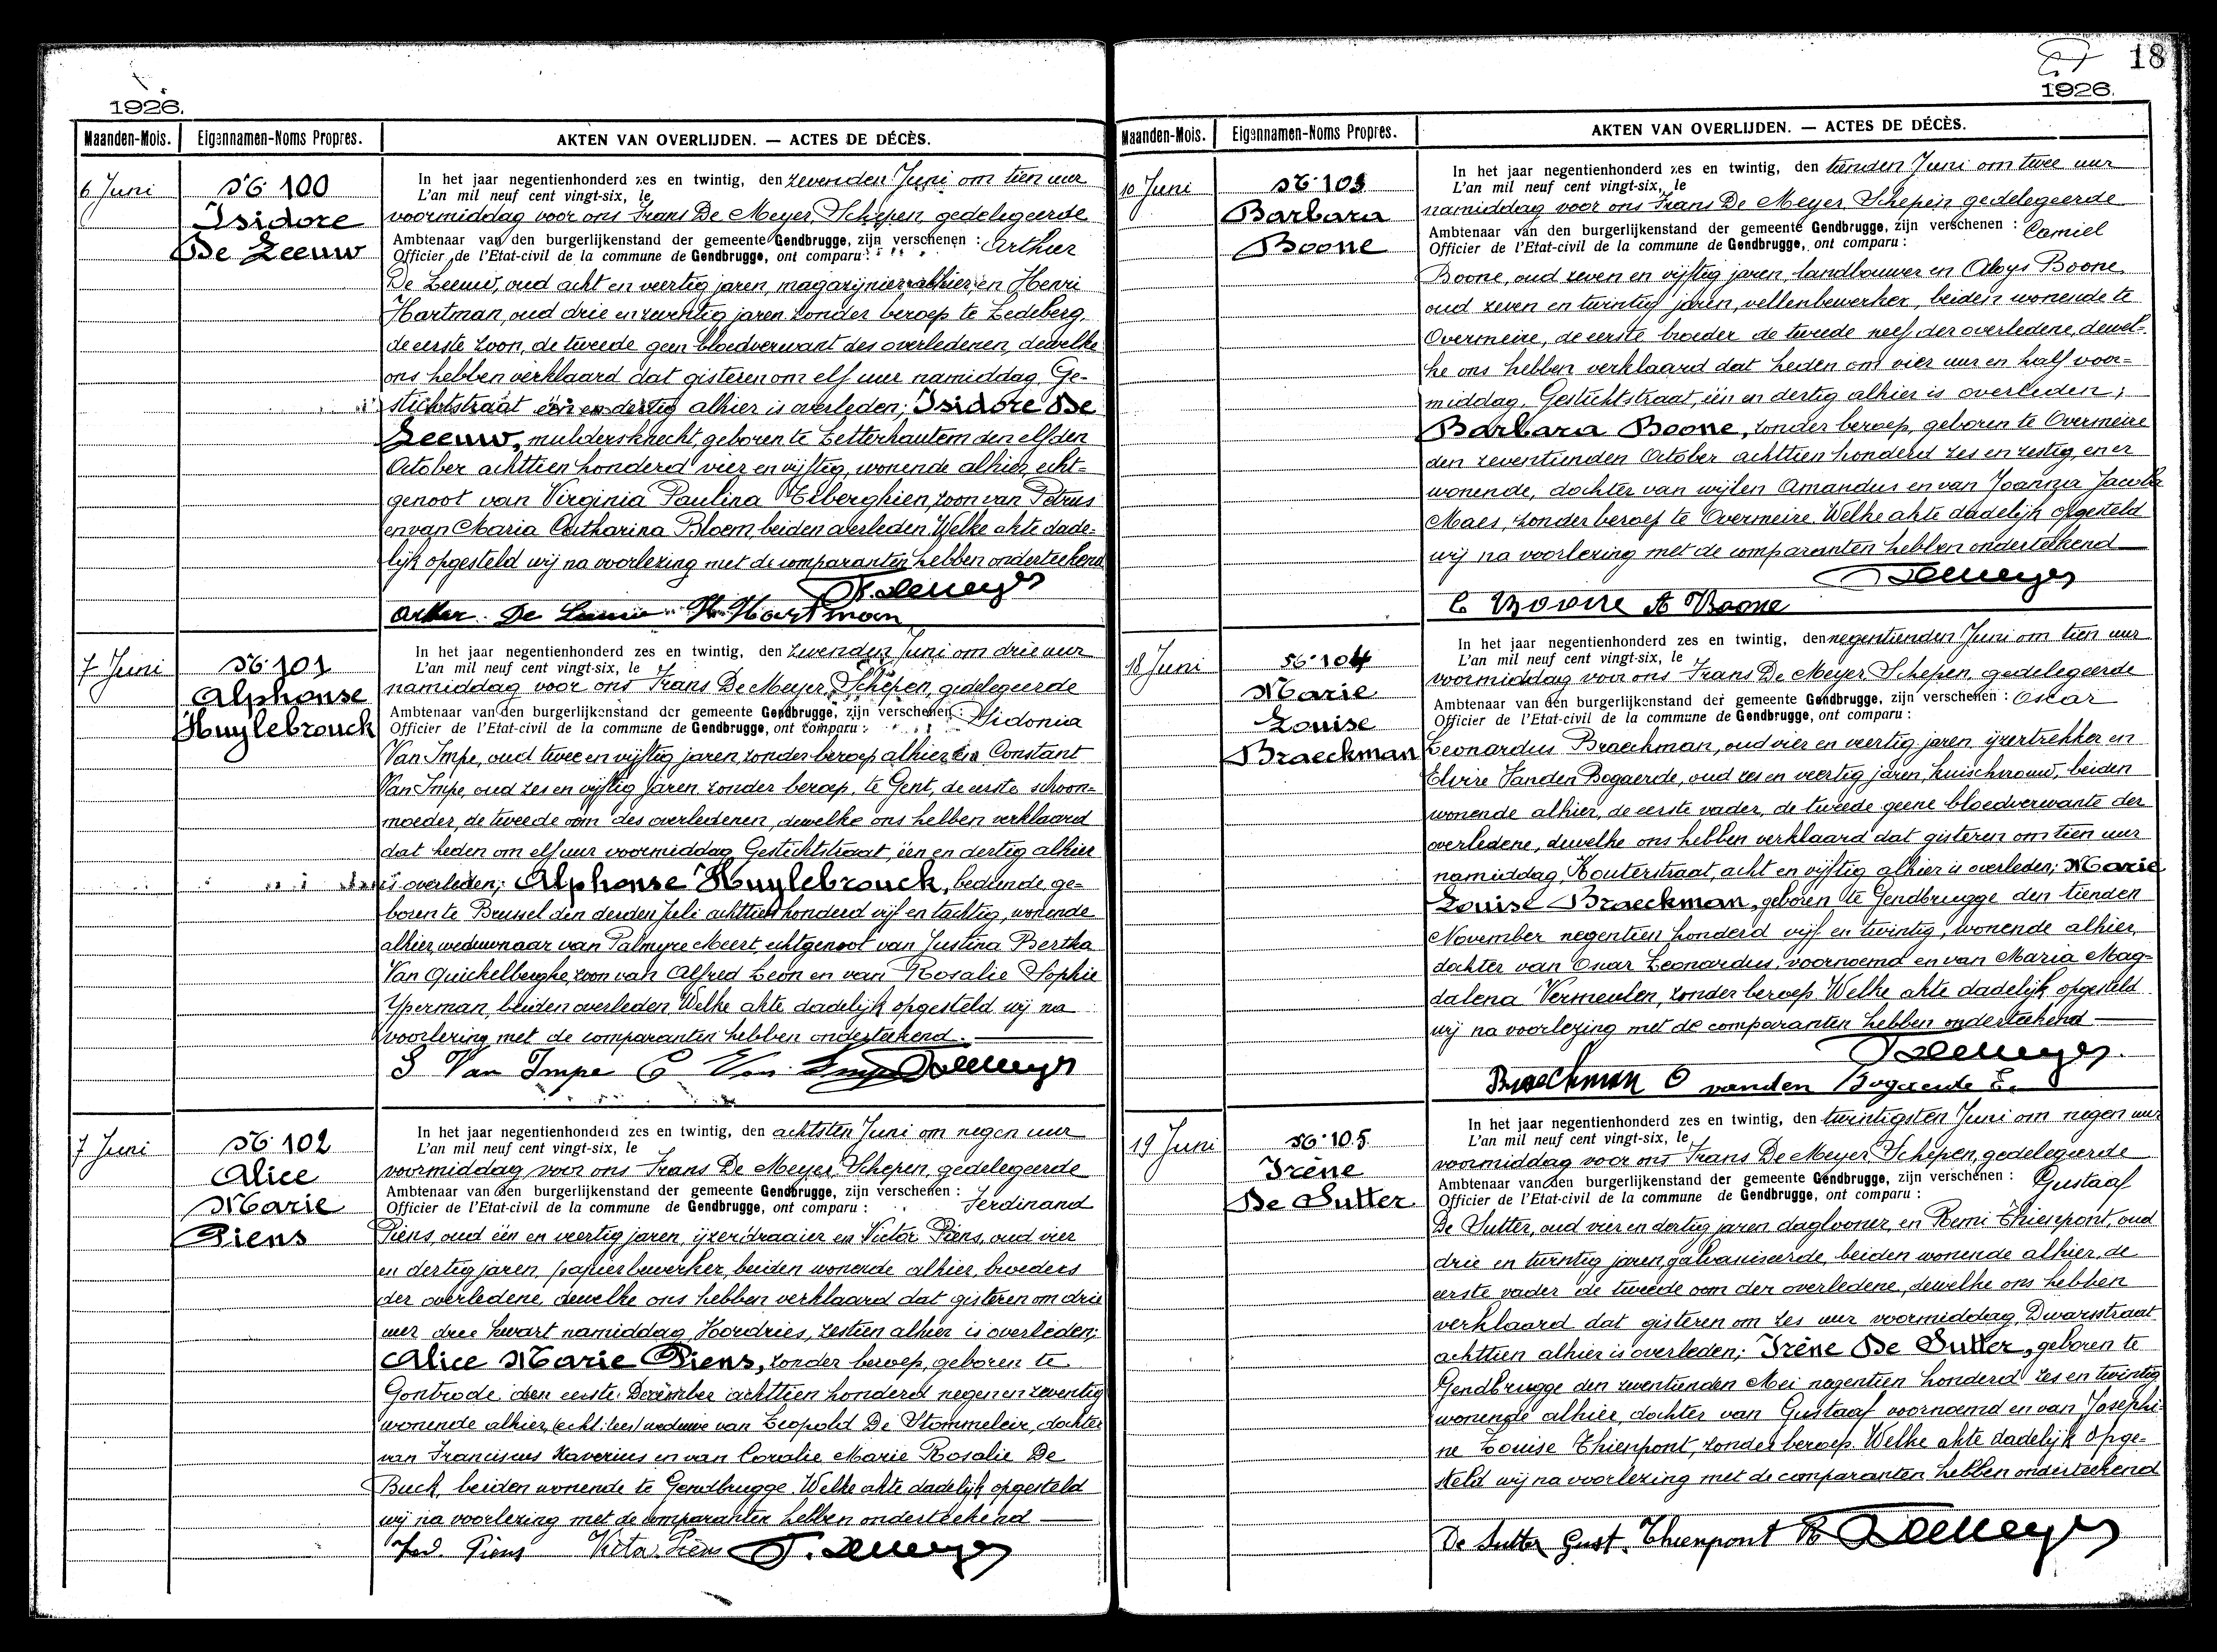 1926.
Maanden-Mois. Eigennamen-Noms Propres. AKTEN VAN OVERLIJDEN. — ACTES DE DÉCÈS.
6 Juni
No 100
Isidore
De Leeuw
In het jaar negentienhonderd zes en twintig, den zevenden Juni om tien uur
L'an mil neuf cent vingt-six, le
voormiddag voor ons Frans De Meyer, Schepen, gedelegeerde
Ambtenaar van den burgerlijkenstand der gemeente Gendbrugge, zijn verschenen : Arthur
Officier de l'Etat-civil de la commune de Gendbrugge, ont comparu :
De Leeuw, oud acht en veertig jaren, magazijnier alhier, en Henri
Hartman, oud drie en zeventig jaren zonder beroep te Ledeberg,
de eerste zoon, de tweede geen bloedverwant des overledenen, dewelke
ons hebben verklaard dat gisteren om elf uur namiddag, Ge-
stichtstraat één en dertig alhier is overleden; Isidore De
Leeuw, muldersknecht, geboren te Letterhautem den elfden
October achttien honderd vier en vijftig, wonende alhier, echt-
genoot van Virginia Paulina Elberghien, zoon van Petrus
en van Maria Catharina Bloem, beiden overleden. Welke akte dade-
lijk opgesteld wij na voorlezing met de comparanten hebben onderteekend
F. Demeyer
Arthur De Leeuw H. Hartman
7 Juni
No 101
Alphonse
Huylebrouck
In het jaar negentienhonderd zes en twintig, den zevenden Juni om drie uur
L'an mil neuf cent vingt-six, le
namiddag voor ons Frans De Meyer, Schepen, gedelegeerde
Ambtenaar van den burgerlijkenstand der gemeente Gendbrugge, zijn verschenen : Sidonia
Officier de l'Etat-civil de la commune de Gendbrugge, ont comparu :
Van Impe, oud twee en vijftig jaren, zonder beroep alhier, en Constant
Van Impe, oud zes en vijftig jaren zonder beroep, te Gent, de eerste schoon-
moeder, de tweede oom des overledenen, dewelke ons hebben verklaard
dat heden om elf uur voormiddag Gestichtstraat, één en dertig alhier
is overleden; Alphonse Huylebrouck, bediende, ge-
boren te Brussel den derden Juli achttien honderd vijf en tachtig, wonende
alhier, weduwnaar van Palmyre Meert, echtgenoot van Justina Bertha
Van Quickelberghe, zoon van Alfred Leon en van Rosalie Sophie
Yperman, beiden overleden. Welke akte dadelijk opgesteld wij na
voorlezing met de comparanten hebben onderteekend.
S Van Impe C Van Impe F. Demeyer
7 Juni
No 102
Alice
Marie
Piens
In het jaar negentienhonderd zes en twintig, den achtsten Juni om negen uur
L'an mil neuf cent vingt-six, le
voormiddag voor ons Frans De Meyer, Schepen, gedelegeerde
Ambtenaar van den burgerlijkenstand der gemeente Gendbrugge, zijn verschenen :
Officier de l'Etat-civil de la commune de Gendbrugge, ont comparu : Ferdinand
Piens, oud één en veertig jaren, ijzerdraaier en Victor Piens, oud vier
en dertig jaren, papierbewerker, beiden wonende alhier, broeders
der overledene, dewelke ons hebben verklaard dat gisteren om drie
uur drie kwart namiddag, Hoodries, zestien alhier is overleden;
Alice Marie Piens, zonder beroep, geboren te
Gontrode den eerste December achttien honderd negen en zeventig
wonende alhier, weduwe van Leopold De Stommeleir, dochter
van Franciscus Xaverius en van Coralie Marie Rosalie De
Buck, beiden wonende te Gendbrugge. Welke akte dadelijk opgesteld
wij na voorlezing met de comparanten hebben onderteekend
Ferd. Piens Victor Piens F. Demeyer
18
1926.
Maanden-Mois. Eigennamen-Noms Propres. AKTEN VAN OVERLIJDEN. — ACTES DE DÉCÈS.
10 Juni
No 103
Barbara
Boone
In het jaar negentienhonderd zes en twintig, den tienden Juni om twee uur
L'an mil neuf cent vingt-six, le
namiddag voor ons Frans De Meyer, Schepen gedelegeerde
Ambtenaar van den burgerlijkenstand der gemeente Gendbrugge, zijn verschenen : Camiel
Officier de l'Etat-civil de la commune de Gendbrugge, ont comparu :
Boone, oud zeven en vijftig jaren, landbouwer en Aloys Boone,
oud zeven en twintig jaren, vellenbewerker, beiden wonende te
Overmeire, de eerste broeder de tweede neef der overledene, dewel-
ke ons hebben verklaard dat heden om vier uur en half voor-
middag, Gestichtstraat, één en dertig alhier is overleden;
Barbara Boone, zonder beroep, geboren te Overmeire
den zeventienden October achttien honderd zes en zestig, en er
wonende, dochter van wijlen Amandus en van Joanna Jacoba
Maes, zonder beroep te Overmeire. Welke akte dadelijk opgesteld
wij na voorlezing met de comparanten hebben onderteekend
F. Demeyer
C Boone A Boone
18 Juni
No 104
Marie
Louise
Braeckman
In het jaar negentienhonderd zes en twintig, den negentienden Juni om tien uur
L'an mil neuf cent vingt-six, le
voormiddag voor ons Frans De Meyer, Schepen, gedelegeerde
Ambtenaar van den burgerlijkenstand der gemeente Gendbrugge, zijn verschenen : Oscar
Officier de l'Etat-civil de la commune de Gendbrugge, ont comparu :
Leonardus Braeckman, oud vier en veertig jaren, ijzertrekker en
Elvire Vanden Bogaerde, oud zes en veertig jaren, huischvrouw, beiden
wonende alhier, de eerste vader, de tweede geene bloedverwante der
overledene, dewelke ons hebben verklaard dat gisteren om tien uur
namiddag, Kouterstraat, acht en vijftig alhier is overleden; Marie
Louise Braeckman, geboren te Gendbrugge den tienden
November negentien honderd vijf en twintig, wonende alhier,
dochter van Oscar Leonardus, voornoemd en van Maria Mag-
dalena Vermeulen, zonder beroep. Welke akte dadelijk opgesteld
wij na voorlezing met de comparanten hebben onderteekend
F. Demeyer.
Braeckman O vanden Bogaerde E.
19 Juni
No 105.
Irène
De Sutter
In het jaar negentienhonderd zes en twintig, den twintigsten Juni om negen uur
L'an mil neuf cent vingt-six, le
voormiddag voor ons Frans De Meyer, Schepen, gedelegeerde
Ambtenaar van den burgerlijkenstand der gemeente Gendbrugge, zijn verschenen : Gustaaf
Officier de l'Etat-civil de la commune de Gendbrugge, ont comparu :
De Sutter, oud vier en dertig jaren, daglooner, en Remi Thienpont, oud
drie en twintig jaren, galvaniseerde, beiden wonende alhier, de
eerste vader de tweede oom der overledene, dewelke ons hebben
verklaard dat gisteren om zes uur voormiddag, Dwarsstraat
achttien alhier is overleden; Irène De Sutter, geboren te
Gendbrugge den zeventienden Mei negentien honderd zes en twintig
wonende alhier, dochter van Gustaaf voornoemd en van Josephi-
ne Louise Thienpont, zonder beroep. Welke akte dadelijk opge-
steld wij na voorlezing met de comparanten hebben onderteekend
De Sutter Gust. Thienpont R F. Demeyer